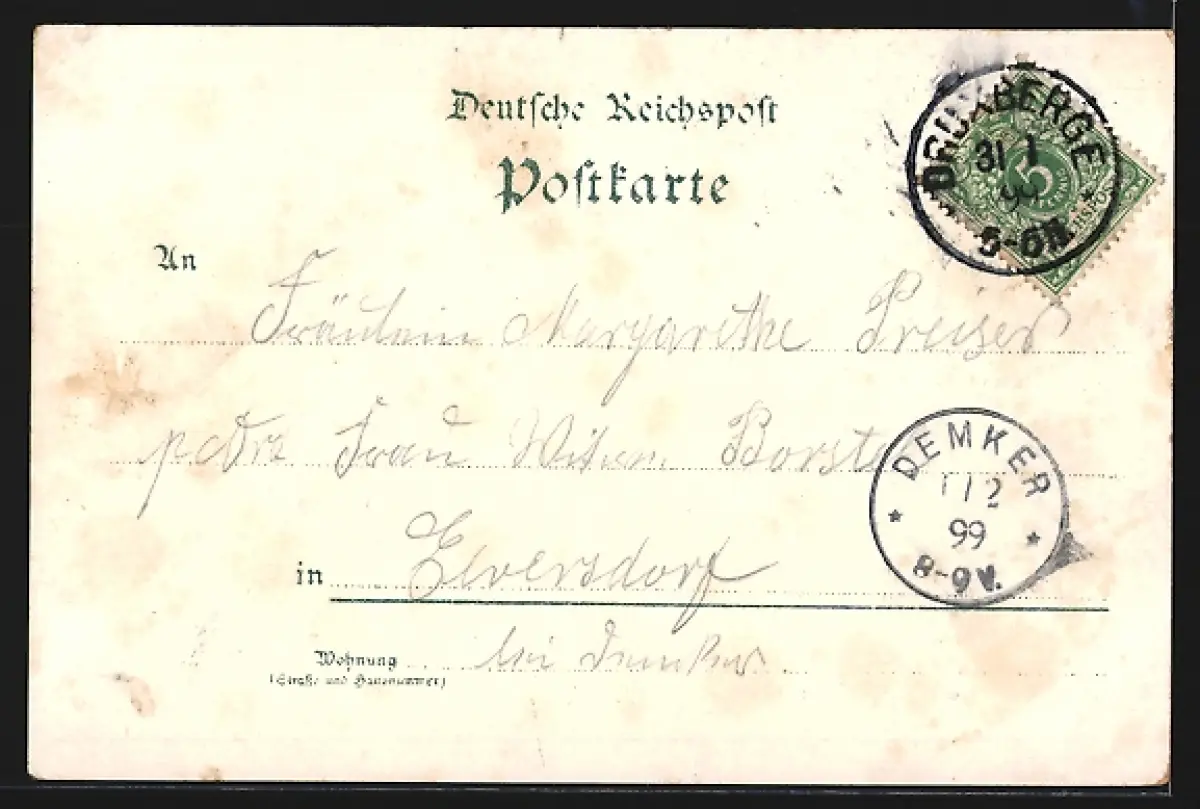 Deutsche Reichspost
Postkarte
DRUXBERGE
31 1
99
5-6N.
5
An
Fräulein Margarethe Preiser
Frau Borste
DEMKER
1/2
99
8-9V.
in Elversdorf
Wohnung bei Demker
(Straße und Hausnummer)